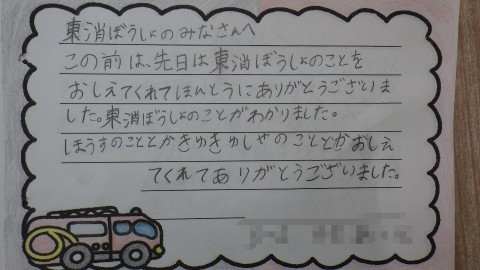 東消ぼうしょのみなさんへ
この前は、先日は東消ぼうしょのことを
おしえてくれてほんとうにありがとうございま
した。東消ぼうしょのことがわかりました。
ほうすのこととかきゅきゅしゃのこととかおしえ
てくれてありがとうございました。